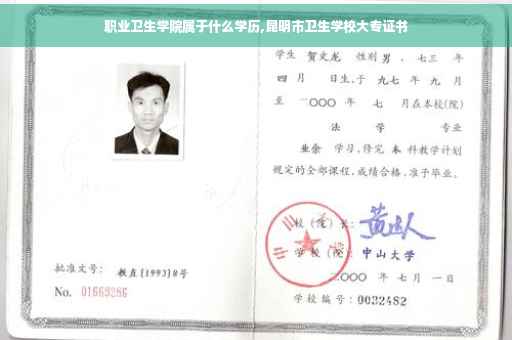 职业卫生学院属于什么学历,昆明市卫生学校大专证书
学生 贺文龙 性别 男 、七三 年
四 月 日生,于 九七 年 九 月
至 二〇〇〇 年 七 月在本校(院)
法 学 专业
业余 学习,修完 本 科教学计划
规定的全部课程,成绩合格,准予毕业。
校(院)长:
学校(院): 中山大学
二〇〇〇 年 七 月 一 日
学校编号:0032482
批准文号: 教直[1993]8号
No. 01663286